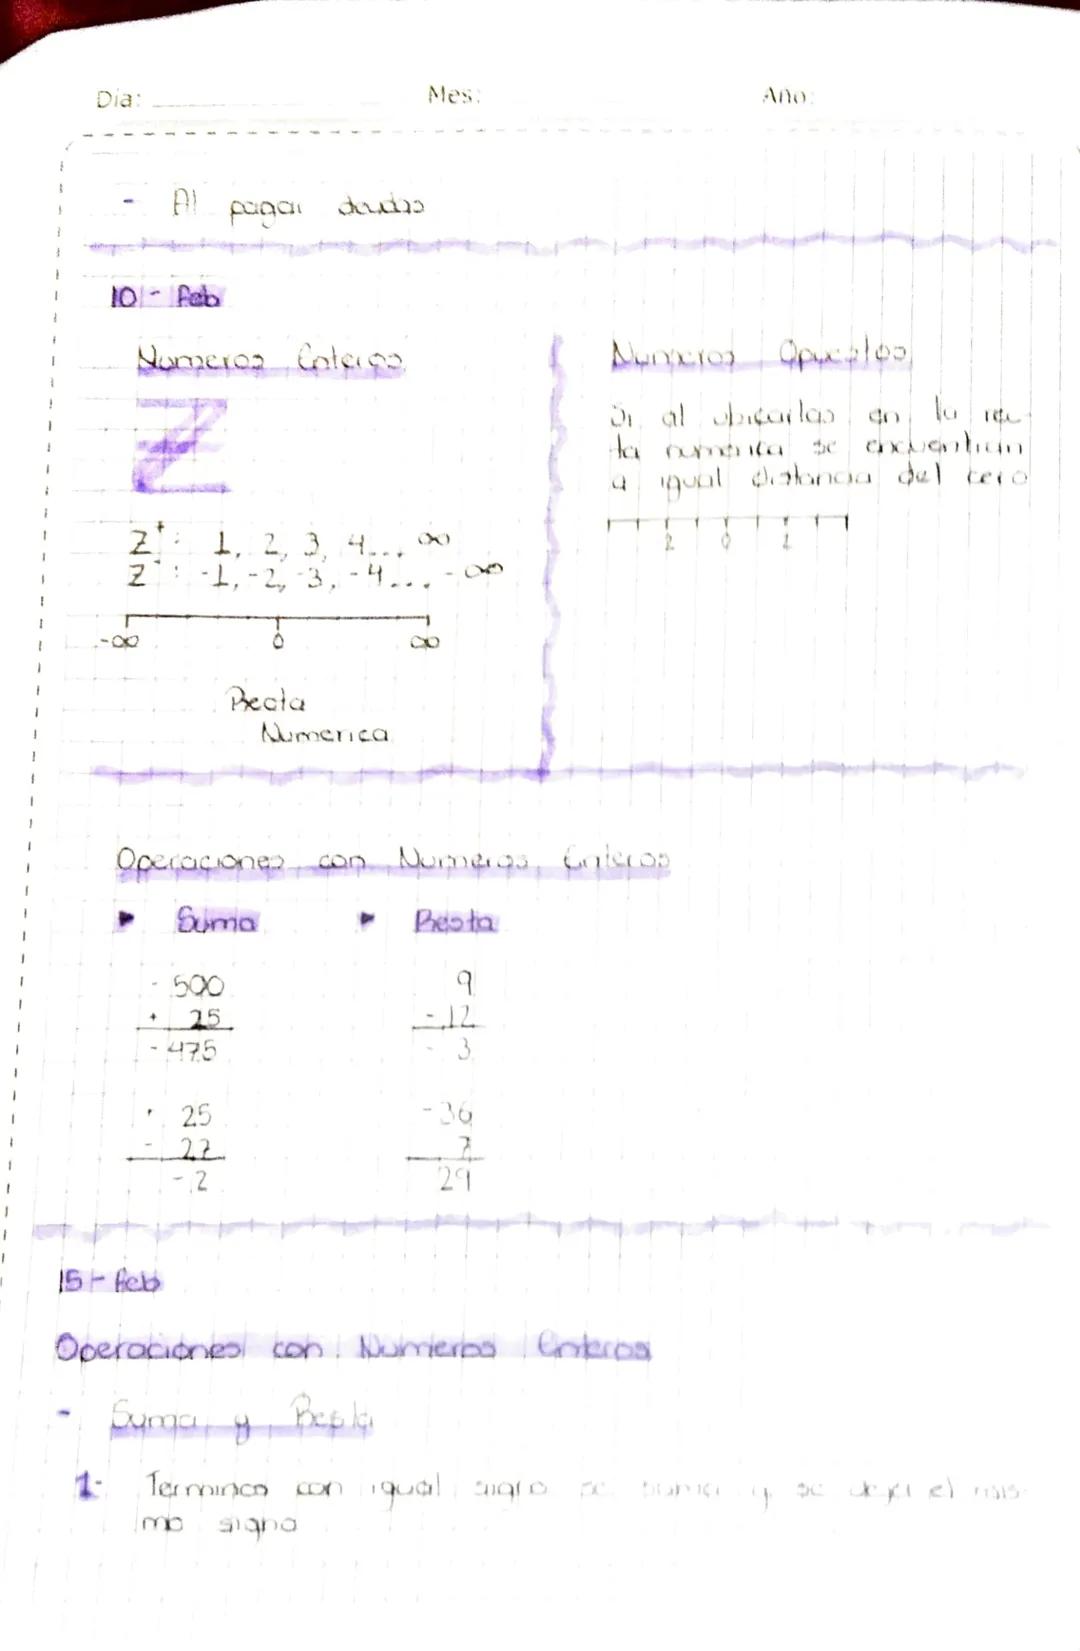 Día: Mes: Año:
- Al pagar deudas
10 - Feb
Numeros Enteros
Z
Z⁺: 1, 2, 3, 4... ∞
Z⁻: -1, -2, -3, -4... -∞
-∞ 0 ∞
Recta
Numerica
Numeros Opuestos
Si al ubicarlos en la rec-
ta numerica se encuentran
a igual distancia del cero
2 0 2
Operaciones con Numeros Enteros
▸ Suma ▸ Resta
- 500
+ 25
- 475
+ 25
- 27
- 2
9
- 12
- 3
- 36
7
29
15 - feb
Operaciones con Numeros Enteros
- Suma y Resta
1- Terminos con igual signo se suma y se deja el mis-
mo signo